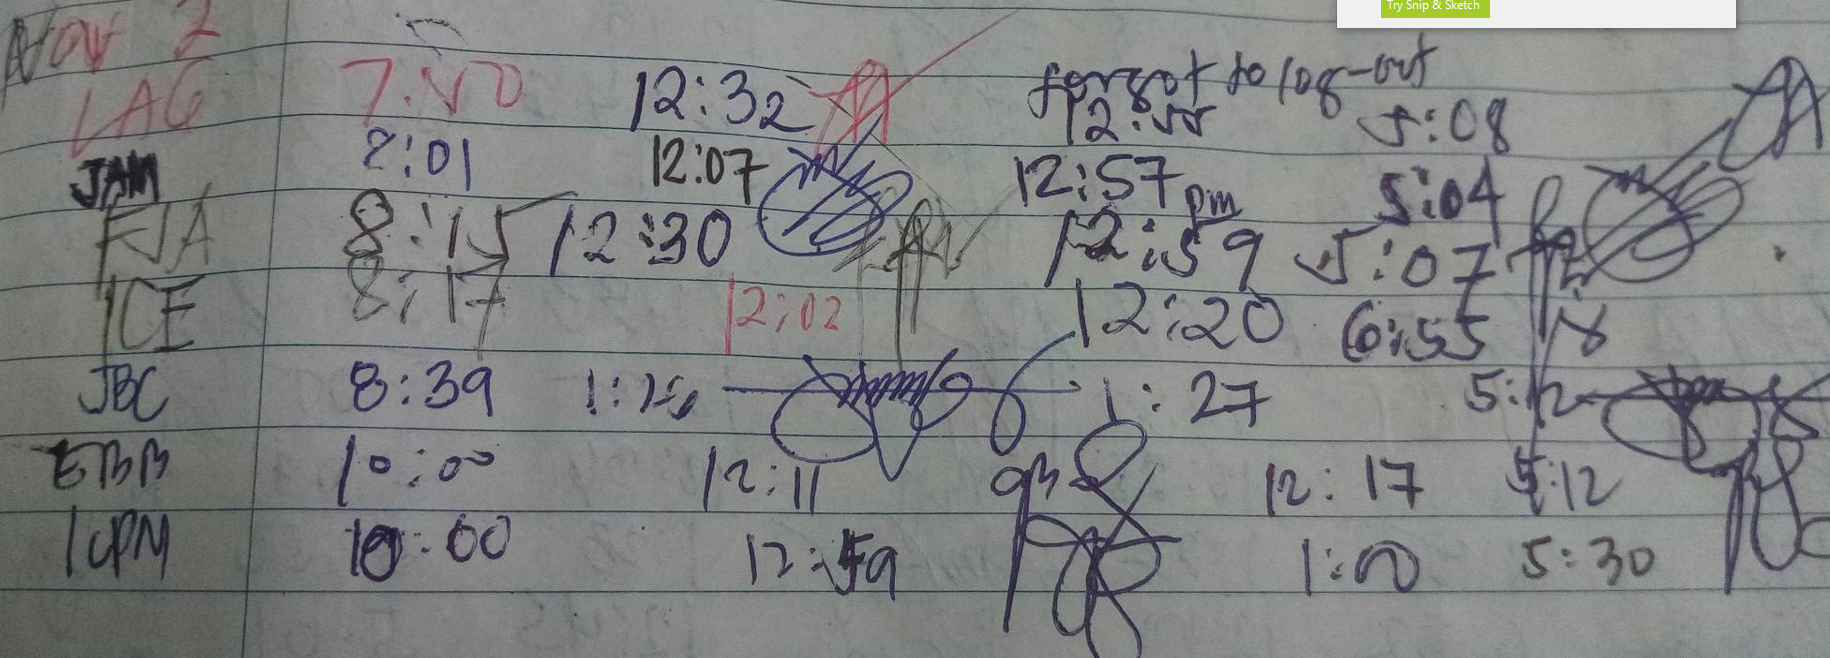 Try Snip & Sketch
Nov 2
forgot to log-out
LAG 7:50 12:32 12:55 5:08
JAM 8:01 12:07 12:57 pm 5:04
FJA 8:15 12:30 12:59 5:07
ICE 8:17 12:02 12:20 6:55
JBC 8:39 1:27 5:12
EBB 10:00 12:11 12:17 5:12
ICPM 10:00 12:59 1:00 5:30